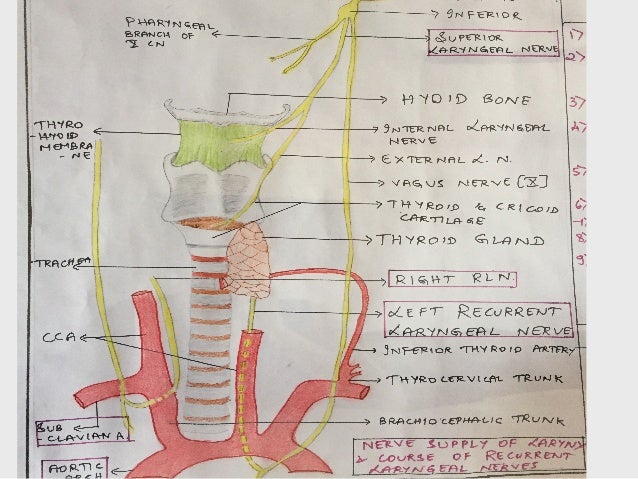 PHARYNGEAL
BRANCH OF
X CN
INFERIOR
SUPERIOR
LARYNGEAL NERVE
1)
2)
HYOID BONE
3)
THYRO
-HYOID
MEMBRA
-NE
INTERNAL LARYNGEAL
NERVE
4)
EXTERNAL L. N.
5)
VAGUS NERVE [X]
THYROID & CRICOID
CARTILAGE
6)
THYROID GLAND
8)
TRACHEA
9)
RIGHT RLN
LEFT RECURRENT
LARYNGEAL NERVE
CCA
INFERIOR THYROID ARTERY
THYROCERVICAL TRUNK
SUB
-CLAVIAN A.
BRACHIOCEPHALIC TRUNK
NERVE SUPPLY OF LARYNX
& COURSE OF RECURRENT
LARYNGEAL NERVES
AORTIC
ARCH